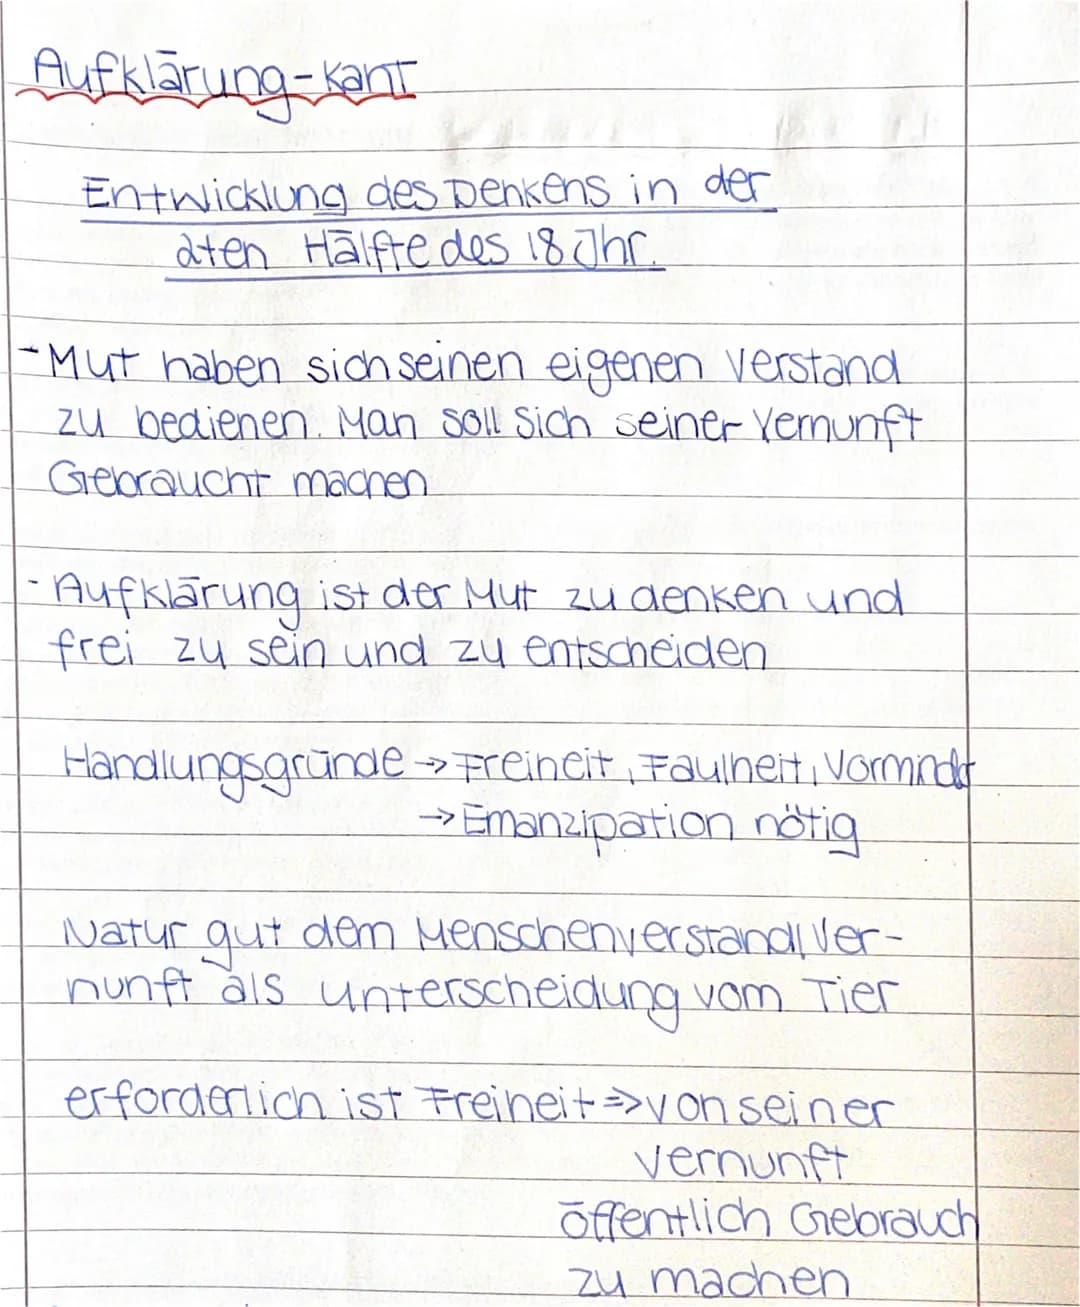 Aufklärung-Kant
Entwicklung des Denkens in der
2ten Hälfte des 18 Jhr.
- Mut haben sich seinen eigenen Verstand
zu bedienen. Man soll sich seiner Vernunft
Gebraucht machen.
- Aufklärung ist der Mut zu denken und
frei zu sein und zu entscheiden
Handlungsgründe → Freiheit, Faulheit, Vormindr
→ Emanzipation nötig
Natur gut dem Menschenverstand, Ver-
nunft als Unterscheidung vom Tier
erforderlich ist Freiheit => von seiner
Vernunft
öffentlich Gebrauch
zu machen